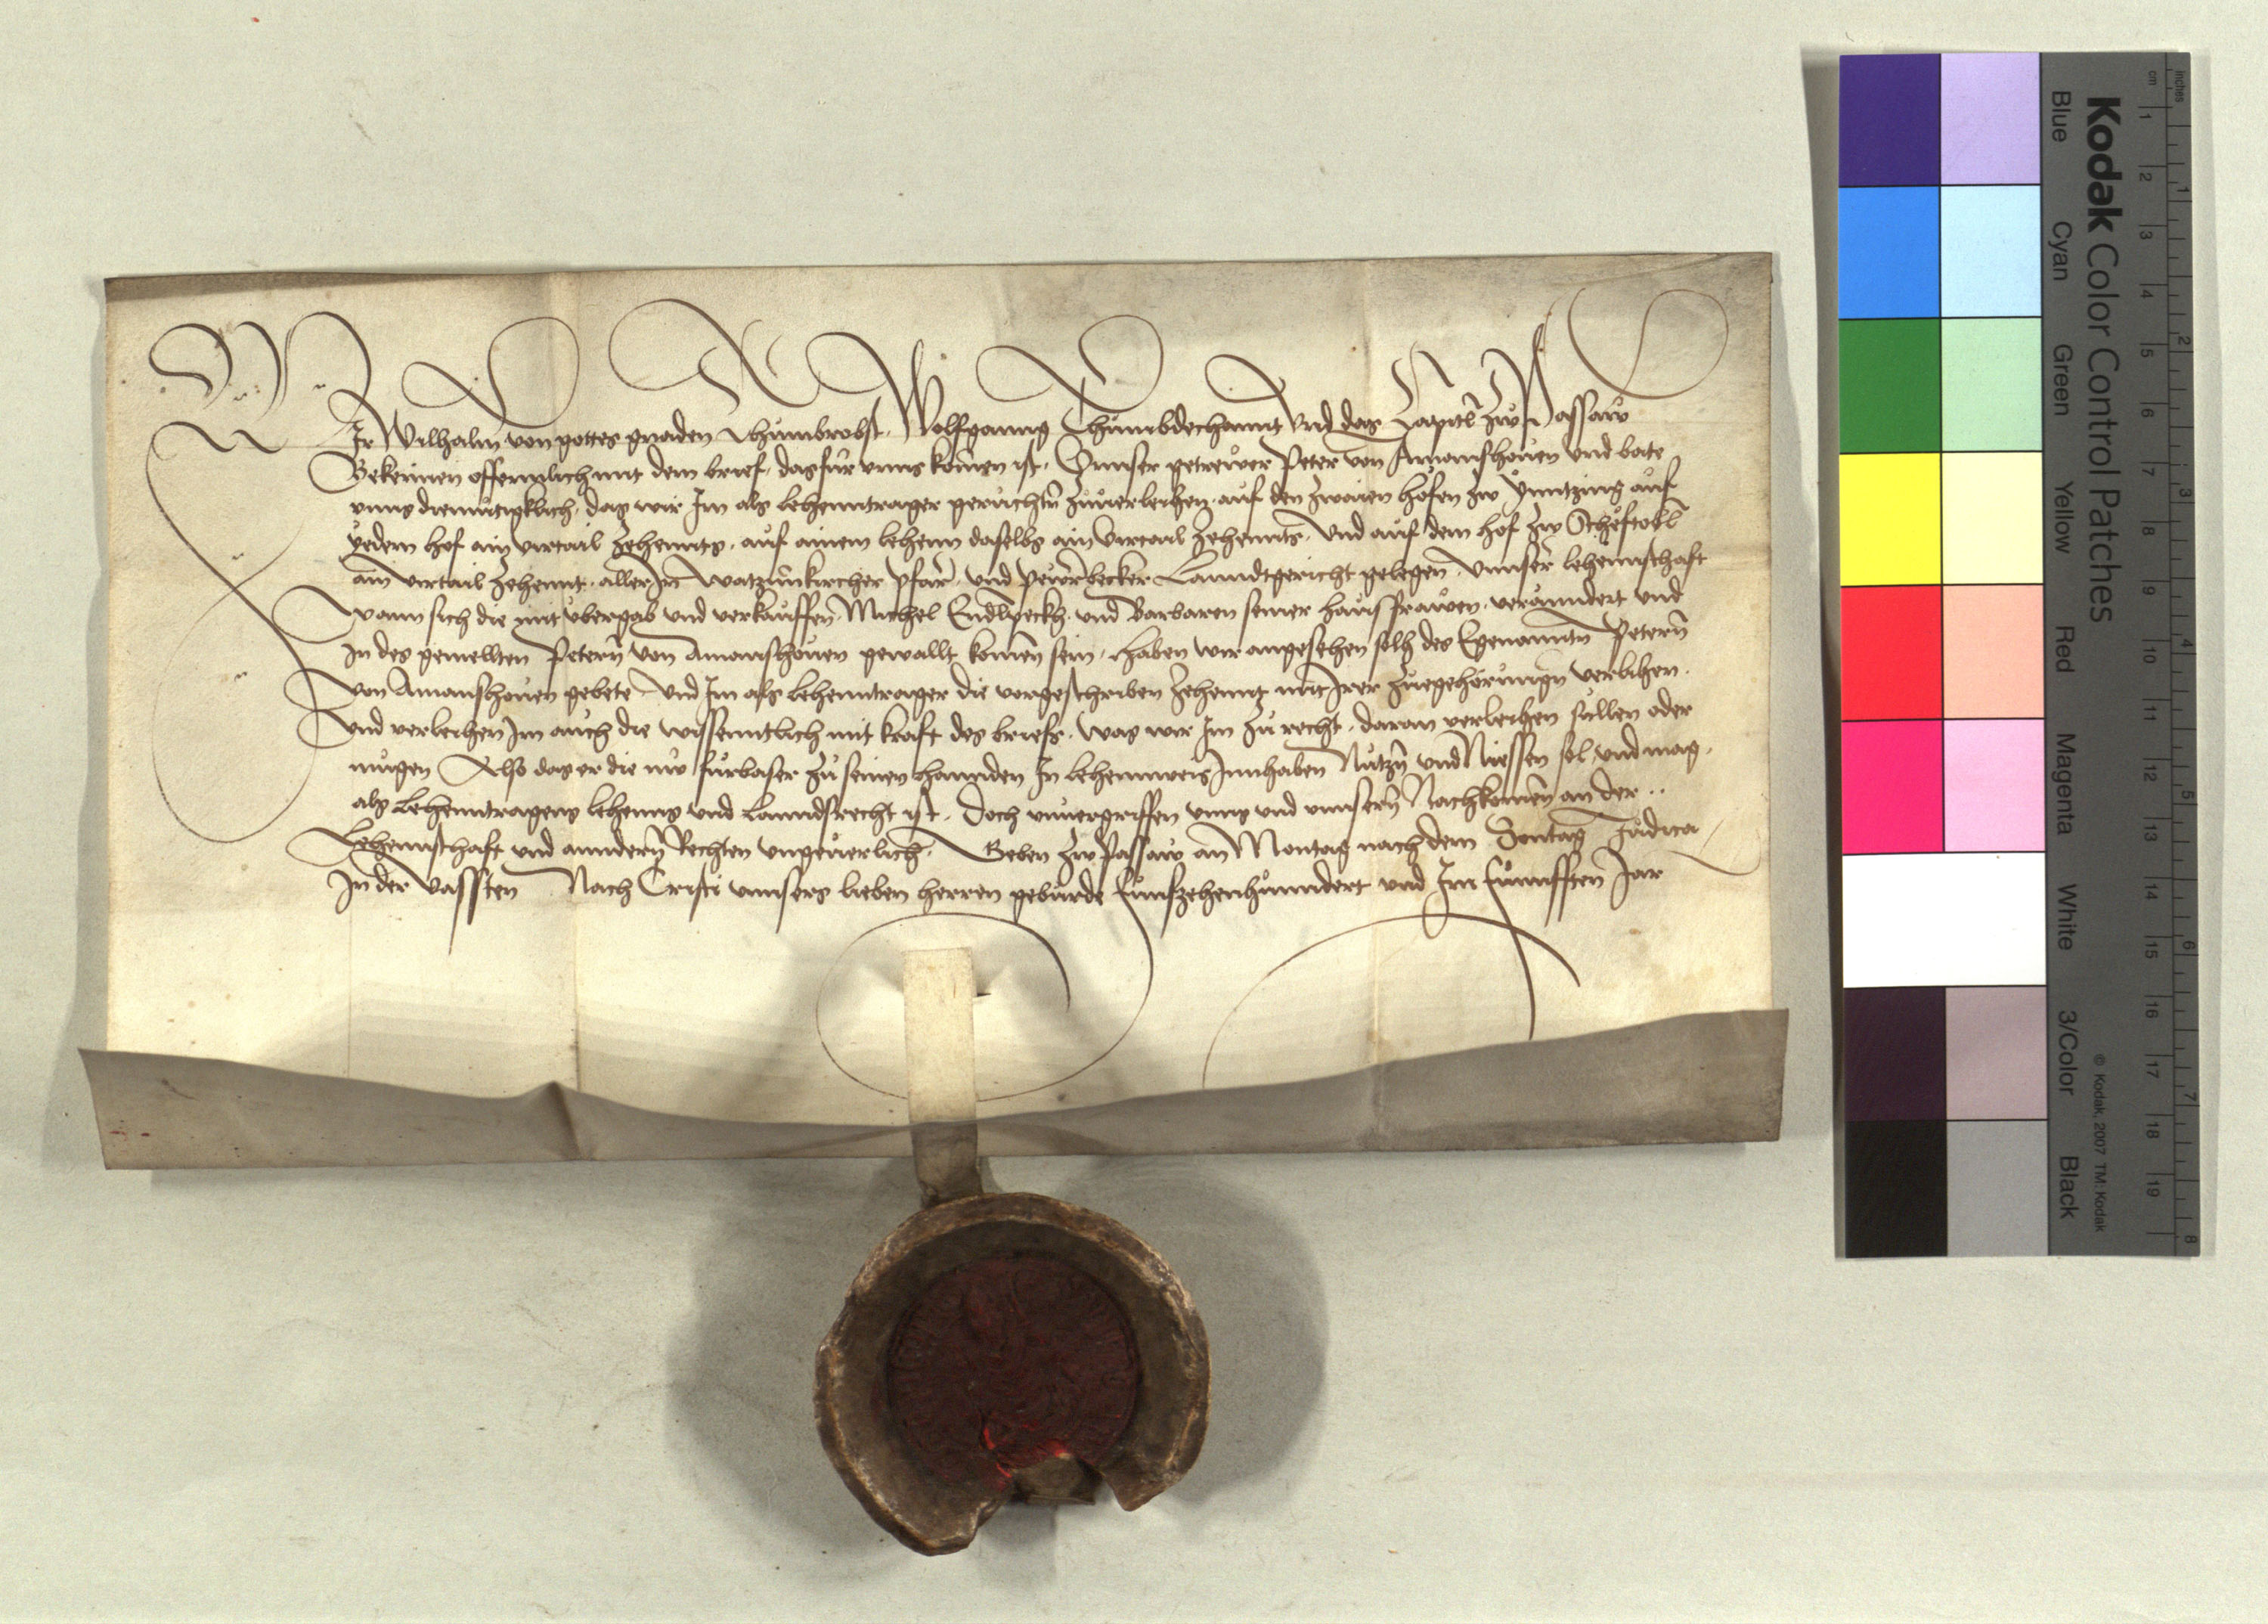 Wir Wilhalm von gottes gnaden Thumbrobst. Wolfganng Thumbdechannt vnd das Capitl zw Passaw
Bekennen offennlich mit dem brief, das fur vnns komen ist. Vnnser getrewer Peter von Amanshouen vnd bate
vnns diemutigklich, das wir Im als lehenntrager geruchtn zuuerleihen, auf den zwaien hofen zw Ynntzing auf
yedem hof ain virtail zehennts, auf ainem lehenn daselbs ain virtail zehennts, vnd auf dem hof zw
ain virtail zehennt, aller In Watznkircher pfarr, vnd Pewrbecker Lanndtgericht gelegen, vnnser lehennschaft
Wann sich die mit vbergab vnd verkauffen, Michel vnd Barbaren seiner hausfrawen, veranndert vnd
In des gemellten Petern von Amanshouen gewallt komen sein, Haben wir angesehen solh des Egenanntn Petern
von Amanshouen gebete vnd Im als lehenntrager die vorgeschriben zehennt mit Irer zuegehorungn verlihen.
Vnd verleihen Im auch die wissenntlich mit kraft des briefs, was wir Im zu recht, daran verleihen sullen oder
mugen Also das er die nw furbaser zu seinen hannden In lehennweis Innhaben Nutzn vnd Niessen sol, vnd mag,
als Lehenntragens lehenns vnd Lanndsrecht ist. Doch vnuergriffen vnns vnd vnnsern Nachkomen an der ..
Lehennschaft vnd anndern Rechten vngeuerlich. Geben zw Passaw an Montag nach dem Sontag Judica
In der Vassten Nach Cristi vnnsers lieben herren geburde funfzehenhunndert vnd Im funfften Jar
Kodak Color Control Patches
Blue Cyan Green Yellow Red Magenta White 3/Color Black
inches 1 2 3 4 5 6 7 8
cm 1 2 3 4 5 6 7 8 9 10 11 12 13 14 15 16 17 18 19
© Kodak, 2007 TM: Kodak